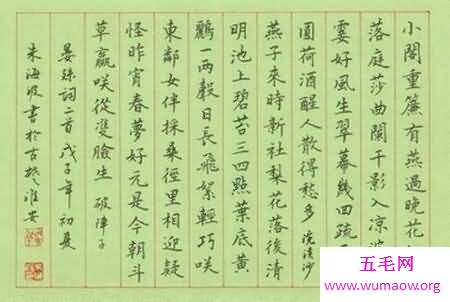 小閣重簾有燕過晚花
落庭莎曲闌干影入涼波
霎好風生翠幕幾回疏
圓荷酒醒人散得愁多 浣溪沙
燕子來時新社梨花落後清
明池上碧苔三四點葉底黃
鸝一兩聲日長飛絮輕巧咲
東鄰女伴採桑徑里相迎疑
怪昨宵春夢好元是今朝斗
草贏咲從雙臉生 破陣子
晏殊詞二首 戊子年初夏
朱海波書於古楚淮安
五毛网
www.wumaow.org